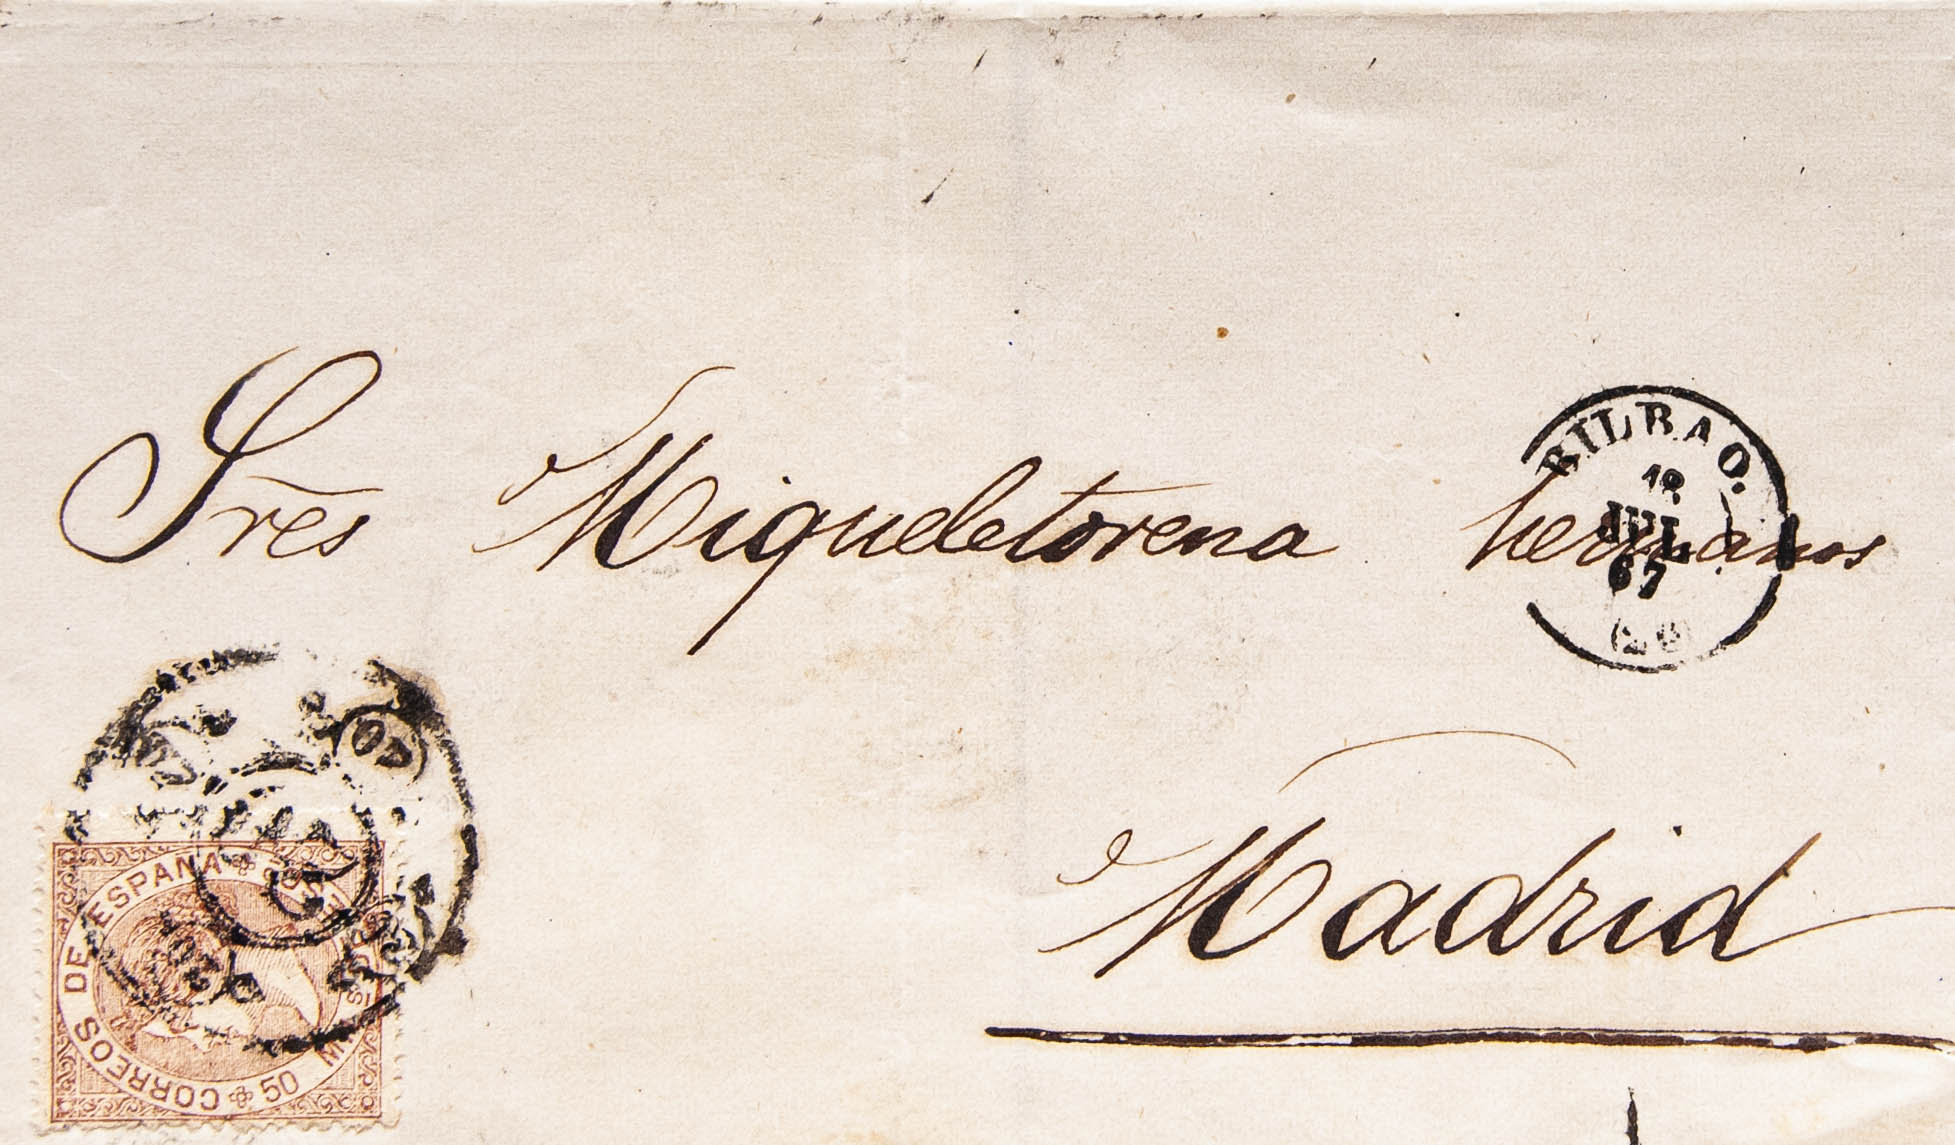 Sres Miqueletorena hermanos
BILBAO.
JUL
67
Madrid
CORREOS DE ESPAÑA
50